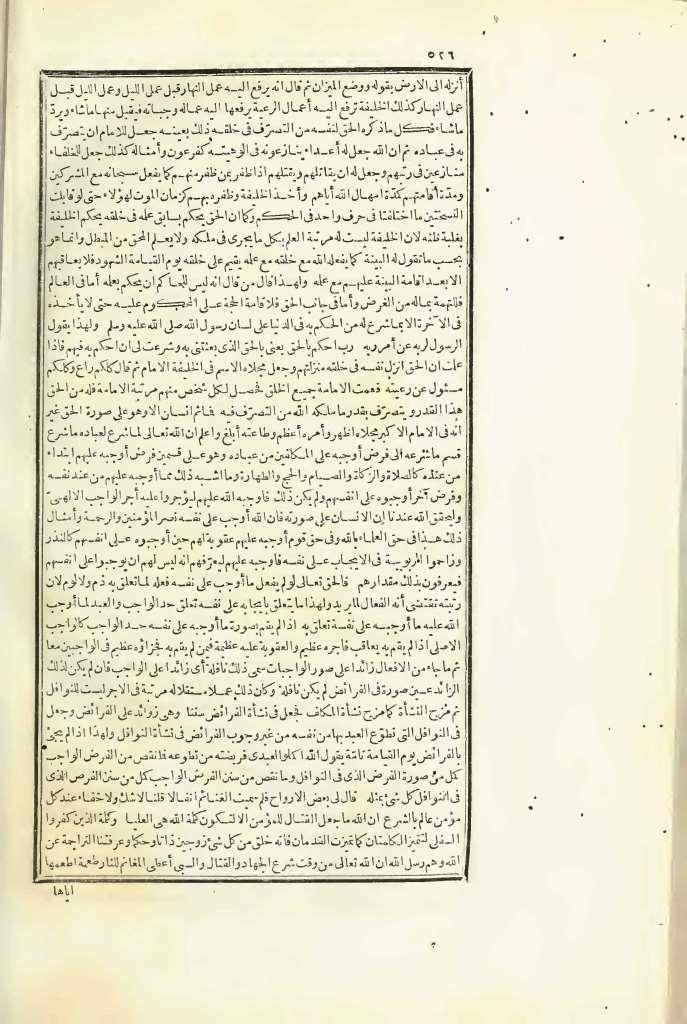 ٥٢٦
أنزله الى الارض بقوله ووضع الميزان ثم قال انه يرفع اليه عمل النهار قبل عمل الليل وعمل الليل قبل
عمل النهار كذلك الخليفة ترفع اليه أعمال الرعية يرفعها اليه عماله وجباته فيقبل منها ما شاء ويرد
ما شاء فكل ما ذكره الحق لنفسه من التصرف فى خلقه ذلك بعينه جعل للامام ان يتصرف
به فى عباده ثم ان الله جعل له أعداء ينازعونه فى الوهيته كفرعون وأمثاله كذلك جعل للخلفاء
منازعين فى رتبهم وجعل له ان يقاتلهم ويقتلهم اذا ظفر بمن ظفر منهم كما يفعل سبحانه مع المشركين
ومدة اقامتهم كمدة امهال الله اياهم وأخذ الخليفة وظفره بهم كزمان الموت لهؤلاء حتى لو قابلت
النسختين ما اختلفتا فى حرف واحد فى الحكم وكما ان الحق يحكم بسابق علمه فى خلقه يحكم الخليفة
بغلبة ظنه لان الخليفة ليست له مرتبة العلم بكل ما يجرى فى ملكه ولا يعلم المحق من المبطل وانما هو
بحسب ما تقول له البينة كما يفعله الله مع خلقه مع علمه يقيم على خلقه يوم القيامة الشهود فلا يعاقبهم
الا بعد اقامة البينة عليهم مع علمه ولهذا قال من قال انه ليس للحاكم ان يحكم بعلمه أما فى العالم
فللتهمة بماله من الغرض وأما فى جانب الحق فلاقامة الحجة على المحكوم عليه حتى لا يأخذه
فى الآخرة الا بما شرع له من الحكم به فى الدنيا على لسان رسول الله صلى الله عليه وسلم ولهذا يقول
الرسول لربه عن أمر ربه رب احكم بالحق يعنى بالحق الذى بعثتنى به وشرعت لى ان احكم به فيهم فاذا
علمت ان الحق انزل نفسه فى خلقه منزلتهم وجعل مجلاه الاسم فى الخليفة الامام ثم قال كلكم راع وكلكم
مسئول عن رعيته فعمت الامامة جميع الخلق فحصل لكل شخص منهم مرتبة الامامة فله من الحق
هذا القدر ويتصرف بقدر ما ملكه الله من التصرف فيه فما ثم انسان الا وهو على صورة الحق غير
انه فى الامام الاكبر مجلاه اظهر وأمره أعظم وطاعته أبلغ واعلم ان الله تعالى لما شرع لعباده ما شرع
قسم ما شرعه الى فرض أوجبه على المكلفين من عباده وهو على قسمين فرض أوجبه عليهم ابتداء
من عنده كالصلاة والزكاة والصيام والحج والطهارة وما اشبه ذلك مما أوجبه عليهم من عند نفسه
وفرض آخر أوجبوه على انفسهم ولم يكن ذلك فاوجبه الله عليهم ليؤجروا عليه أجر الواجب الالهى
وليحقق الله عندنا ان الانسان على صورته فان الله أوجب على نفسه نصر المؤمنين والرحمة وأمثال
ذلك هذا فى حق العلماء بالله وفى حق قوم أوجبه عليهم عقوبة لهم حين أوجبوه على انفسهم كالنذر
وزاحموا الربوبية فى الايجاب على نفسه فاوجبه عليهم ليعرفهم انه ليس لهم ان يوجبوا على انفسهم
فيعرفون بذلك مقدارهم فالحق تعالى لو لم يفعل ما أوجب على نفسه فعله لما تعلق به ذم ولا لوم لان
رتبته تقتضى أنه الفعال لما يريد ولهذا ما يتعلق بايجابه على نفسه تعلق حد الواجب والعبد لما أوجب
الله عليه ما أوجبه على نفسه تعلق به اذا لم يقم بصورة ما أوجبه على نفسه حد الواجب كالواجب
الاصلى اذا لم يقم به يعاقب فاجره عظيم والعقوبة عليه عظيمة فمن لم يقم به فجزاؤه عظيم فى الواجبين معا
ثم ما جاء من الافعال زائدا على صور الواجبات سمى ذلك نافلة أى زائدا على الواجب فان لم يكن لذلك
الزائد عين صورة فى الفرائض لم يكن نافلة وكان ذلك عملا مستقلا له مرتبة فى الاجر ليست للنوافل
ثم مزج النشأة كما مزج نشأة المكلف فجعل فى نشأة الفرائض سننا وهى زوائد على الفرائض وجعل
فى النوافل التى تطوع العبد بها من نفسه من غير وجوب الفرائض فى نشأة النوافل ولهذا اذا لم يجئ
بالفرائض يوم القيامة تامة يقول الله اكملوا لعبدى فريضته من تطوعه فما نقص من الفرض الواجب
كمل من صورة الفرض الذى فى النوافل وما نقص من سنن الفرض الواجب كمل من سنن الفرض الذى
فى النوافل كل شئ بمثله قال لى بعض الارواح فلم سميت الغنائم انفالا قلنا لاشك ولا خفاء عند كل
مؤمن عالم بالشرع ان الله ما جعل القتال للمؤمن الا لتكون كلمة الله هى العليا وكلمة الذين كفروا
السفلى لتتميز الكلمتان كما تميزت القدمان فانه خلق من كل شئ زوجين ذاتا وحكما وعرفتنا التراجمة عن
الله وهم رسل الله ان الله تعالى من وقت شرع الجهاد والقتال والسبى أعطى المغانم للنار طعمة اطعمها
اياها